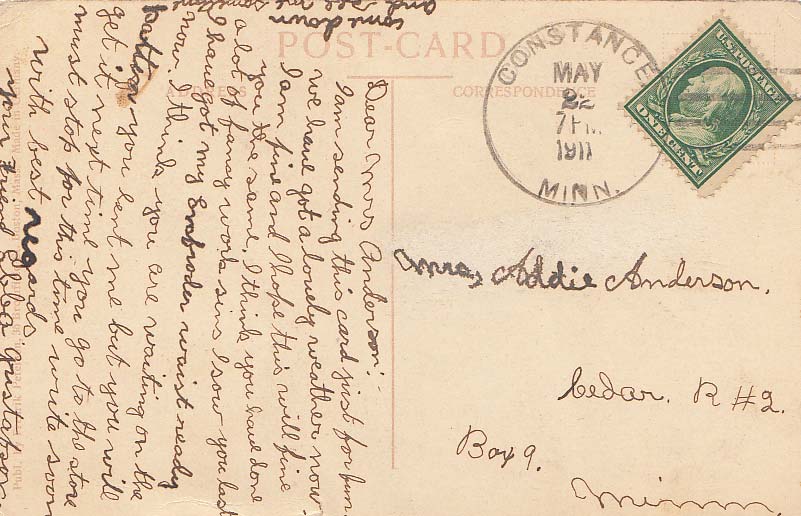 POST-CARD
ADDRESS
CORRESPONDENCE
CONSTANCE
MAY
22
7PM
1911
MINN.
U.S. POSTAGE
ONE CENT
Mrs, Addie Anderson.
Cedar. R #2.
Box 9.
Minn.
Dear Mrs Anderson:-
I am sending this card just for fun
we have got a lovely weather now.
I am fine and I hope this will fine
you the same, I think you have done
a lot of fancy work sins I sow you last
I have got my Embroder waist ready
now. I think you are waiting on the
pattern you lent me but you will
get it next time you go to the store
must stop for this time write soon
with best regards
your Friend Ebba Gustafson.
come down
and see me sometime
Made in Germany